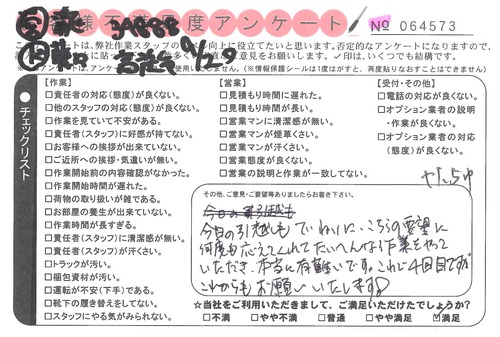 お客様不満足度アンケート
No 064573
このアンケートは、弊社作業スタッフの
向上に役立てたいと思います。否定的なアンケートになりますので、
直な意見をお願いします。✓印は、いくつでも結構です。
(※情報保護シールは1度はがすと、再度貼りなおすことはできません)
●チェックリスト
【作業】
□責任者の対応(態度)が良くない。
□他のスタッフの対応(態度)が良くない。
□作業を見ていて不安がある。
□責任者(スタッフ)に好感が持てない。
□お客様への挨拶が出来ていない。
□ご近所への挨拶・気遣いが無い。
□作業開始前の内容確認がなかった。
□作業開始時間が遅れた。
□荷物の取り扱いが雑である。
□お部屋の養生が出来ていない。
□作業時間が長すぎる。
□責任者(スタッフ)に清潔感が無い。
□責任者(スタッフ)が汗くさい。
□トラックが汚い。
□梱包資材が汚い。
□運転が不安(下手)である。
□靴下の履き替えをしてない。
□スタッフにやる気がみられない。
【営業】
□見積もり時間に遅れた。
□見積もり時間が長い。
□営業マンに清潔感が無い。
□営業マンが煙草くさい。
□営業マンが汗くさい。
□営業の態度が良くない。
□営業の説明と作業が一致してない。
【受付・その他】
□電話の対応が良くない。
□オプション業者の説明
・作業が良くない。
□オプション業者の対応
(態度)が良くない。
その他、ご意見・ご要望等ありましたらお書き下さい。
今日の引越しも ていねいに、こちらの要望に
何度も応えてくれて たいへんな作業をやって
いただき、本当に有難いです。これで4回目ですが
これからもお願いいたします
☆当社をご利用いただきまして、ご満足いただけたでしょうか?
□不満 □やや不満 □普通 □やや満足 ☑満足